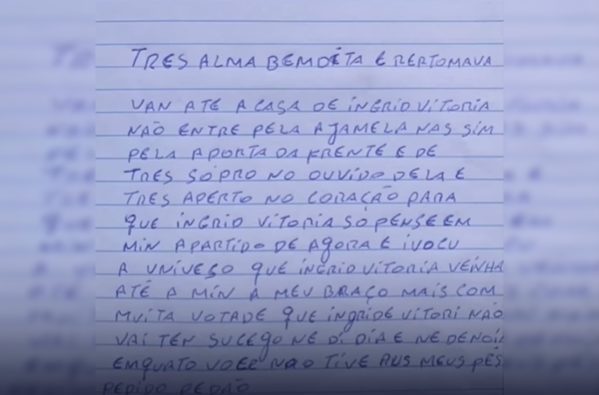 TRES ALMA BEMDITA E RERTOMAVA
VAN ATÉ A CASA DE INGRID VITORIA
NÃO ENTRE PELA AJAMELA NAS SIM
PELA APORTA DA FRENTE E DE
TRES SÓPRO NO OUVIDO DELA E
TRES APERTO NO CORAÇÃO PARA
QUE INGRID VITORIA SÓ PENSE EM
MIN APARTIDO DE AGORA E IVOCU
A UNIVEÇO QUE INGRID VITORIA VENHA
ATÉ A MIN A MEU BRAÇO MAIS COM
MUITA VOTADE QUE INGRIDE VITORI NÃO
VAI TEN SUCEGO NE DI DIA E NE DENOIT
EMQUATO VOEE NÃO TIVE AUS MEUS PÉS
PEDIDO PERDÃO